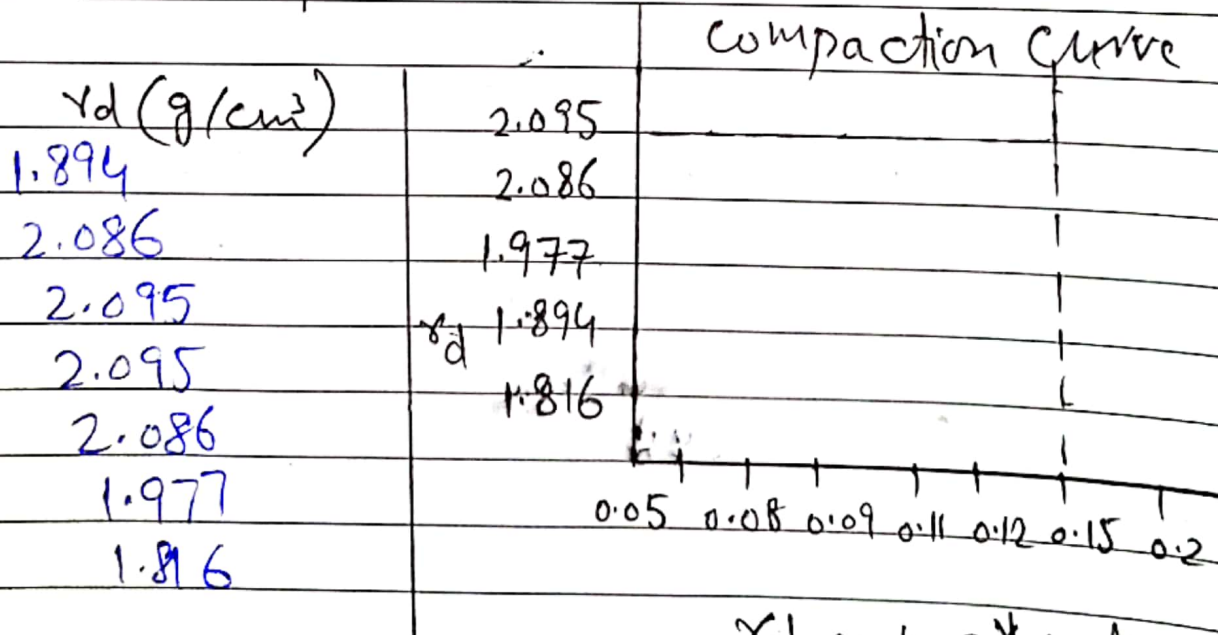 compaction curve
γd (g/cm³)
1.894
2.086
2.095
2.095
2.086
1.977
1.816
2.095
2.086
1.977
γd 1.894
1.816
0.05 0.08 0.09 0.11 0.12 0.15 0.2